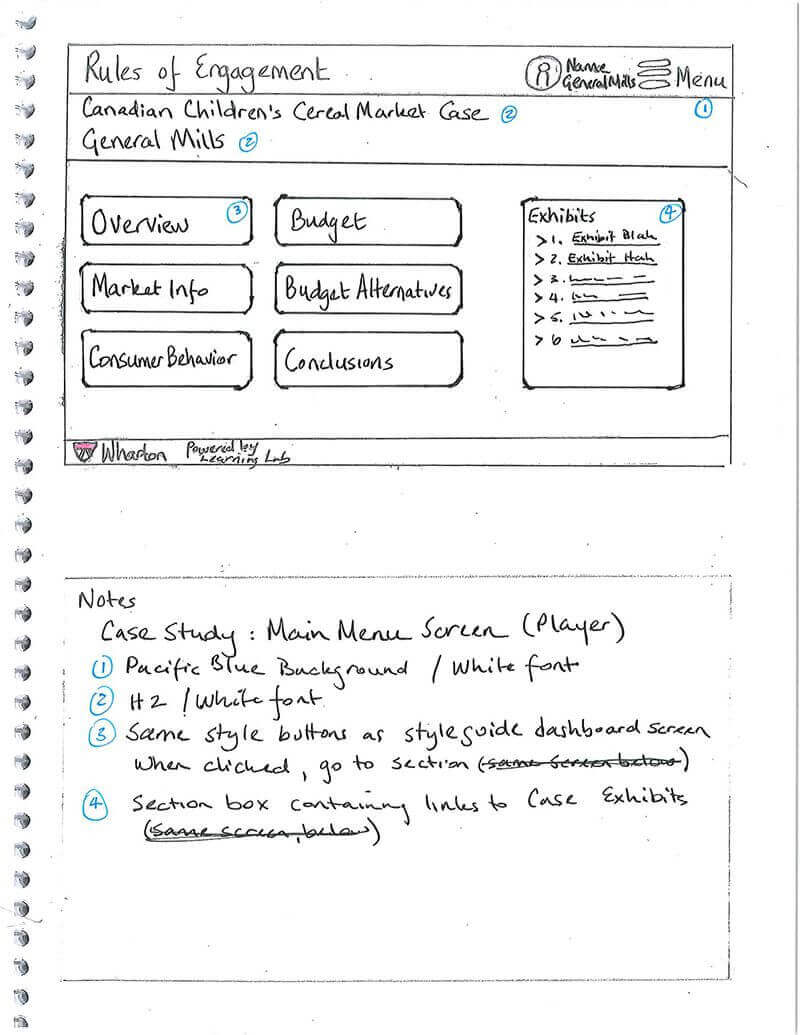 Rules of Engagement
Name
General Mills
Menu
Canadian Children's Cereal Market Case ②
①
General Mills ②
Overview ③
Budget
Market Info
Budget Alternatives
Consumer Behavior
Conclusions
Exhibits ④
> 1. Exhibit Blah
> 2. Exhibit Hah
> 3.
> 4.
> 5.
> 6
Wharton
Powered by
Learning Lab
Notes
Case Study : Main Menu Screen (Player)
① Pacific Blue Background / White font
② H2 / White font
③ Same style buttons as styleguide dashboard screen
when clicked, go to section (same screen below)
④ Section box containing links to Case Exhibits
(same screen, below)